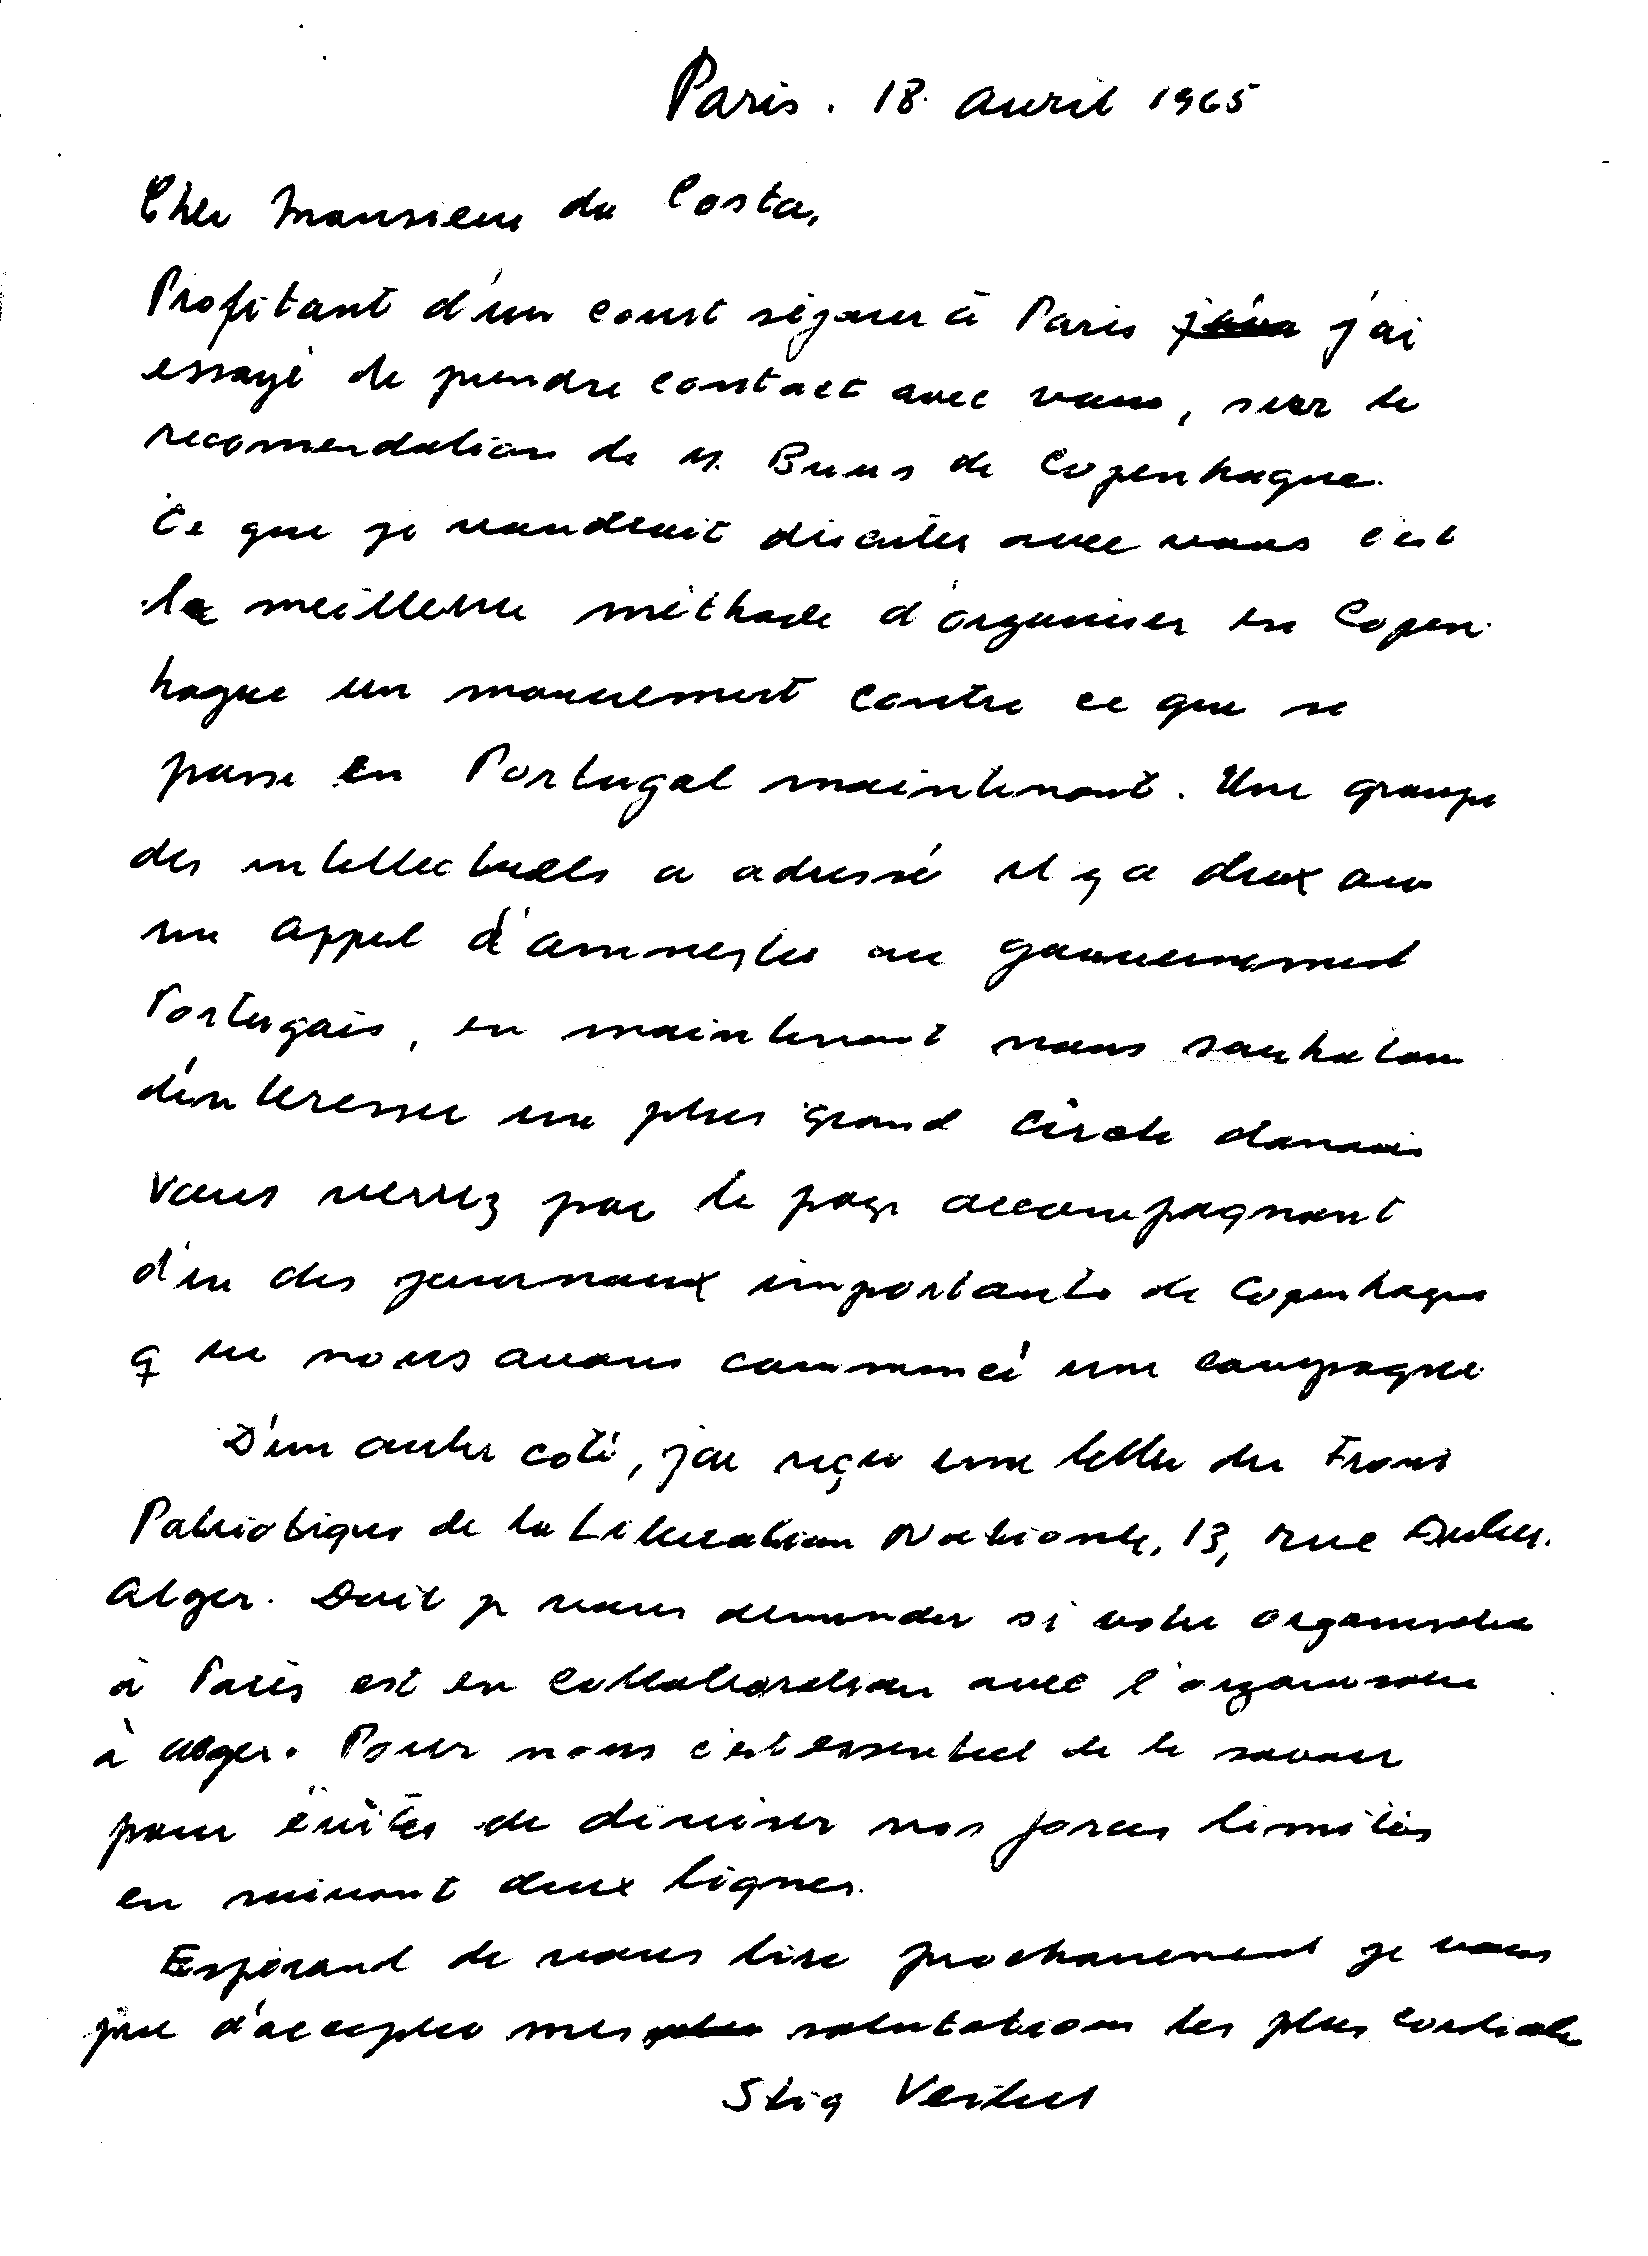 Paris. 18. avril 1965
Cher Monsieur da Costa,
Profitant d'un court séjour à Paris j'ai
essayé de prendre contact avec vous, sur le
recomendation de M. Buus de Copenhague.
Ce que je voudrait discuter avec vous c'est
la meilleure méthode d'organiser en Copen
hague un mouvement contre ce que se
passe en Portugal maintenant. Une groupe
des intellectuels a adressé il y a deux ans
un appel d'amnestie au gouvernement
Portugais, en maintenant nous souhaitons
d'interesser un plus grand circle danois
Vous verrez par le page accompagnant
d'un des journaux importants de Copenhague
que nous avons commencé une campagne
D'un autre coté, j'ai reçu une lettre du Front
Patriotique de la Liberation Nationale, 13, rue
Alger. Doit je vous demander si votre organisation
à Paris est en collaboration avec l'organisation
à Alger. Pour nous c'est essentiel de le savoir
pour éviter de diviser nos forces limités
en suivant deux lignes.
Espérant de vous lire prochainement je vous
prie d'accepter mes salutations les plus cordiale
Stig